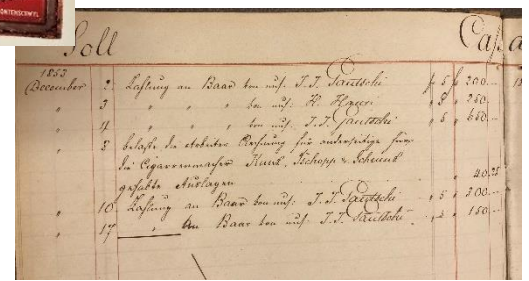 ONTENSCHWYL
Soll
Cassa
1853
December 2. Zahlung an Baar von uns: J.J. Gautschi f 5 f 200.—
" 3 " " " von uns: H. Hauri " 8 " 250.—
" 4 " " " von uns: J.J. Gautschi " 5 " 650.—
" 8 belaste die Arbeiter Rechnung für
die Cigarrenmacher Kunz, Tschopp & Schenk
gehabte Auslagen " 40.25
" 10 Zahlung an Baar von uns: J.J. Gautschi " 5 " 200.—
" 17 " An Baar von uns: J.J. Gautschi " 5 " 150.—